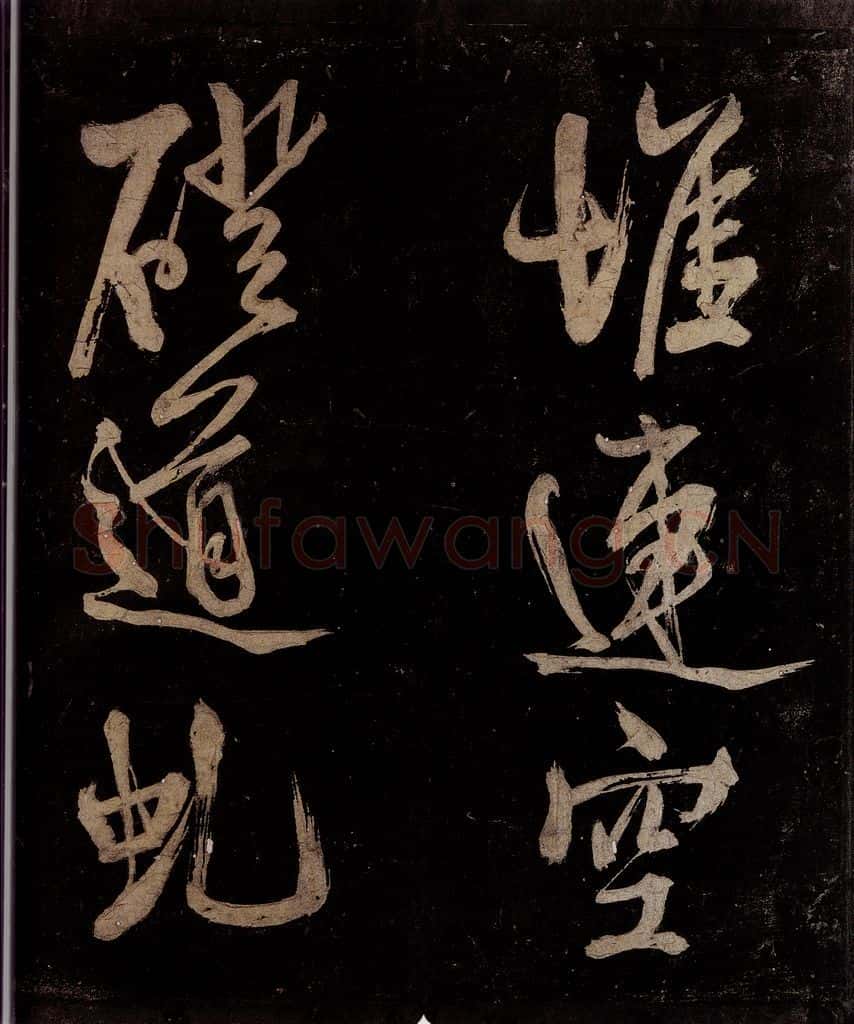 堆連空
磴道虬
Shufawang.CN